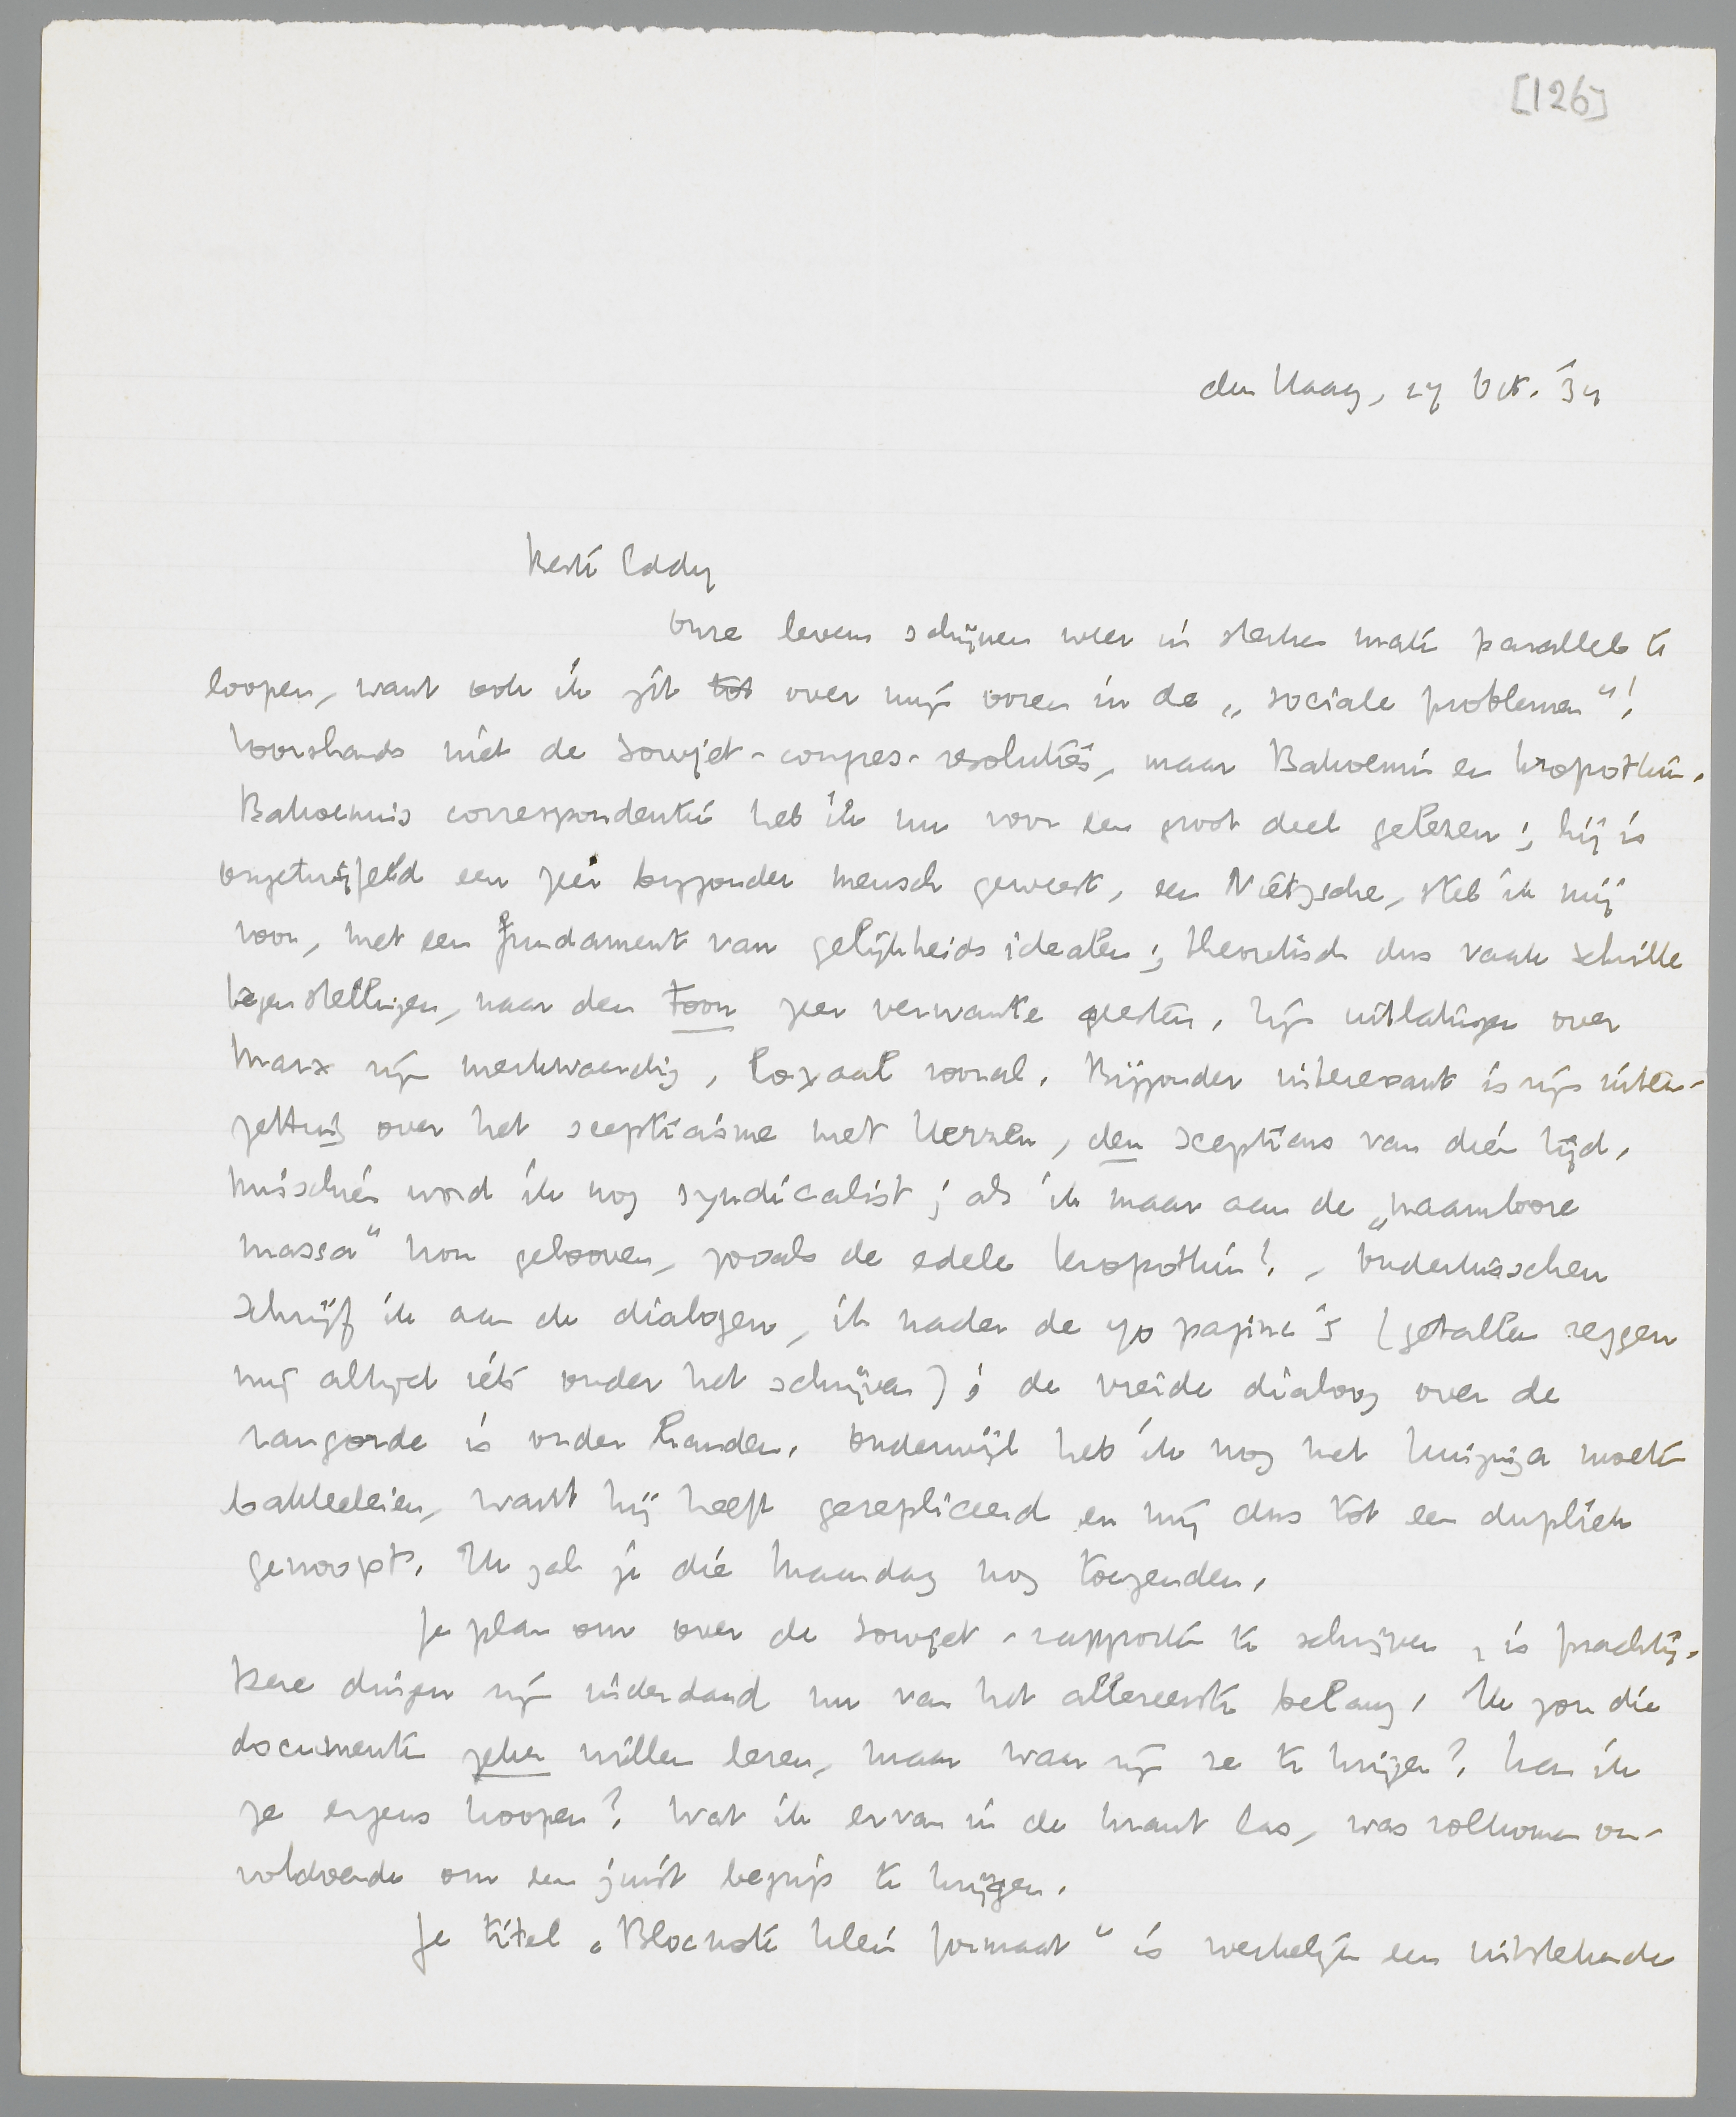 [126]
den Haag, 27 Oct. '34
Beste Eddy
Onze levens schijnen weer in sterke mate parallel te
loopen, want ook ik zit tot over mijn ooren in de „sociale problemen"!
Voorshands niet de Sowjet-congres-resoluties, maar Bakoenin en Kropotkin.
Bakoenins correspondentie heb ik nu voor een groot deel gelezen; hij is
ongetwijfeld een zeer byzonder mensch geweest, een Nietzsche, stel ik mij
voor, met een fundament van gelijkheidsidealen; theoretisch dus vaak schrille
tegenstellingen, naar den toon zeer verwante geesten. Zijn uitlatingen over
Marx zijn merkwaardig, loyaal vooral. Bijzonder interessant is zijn uiteen-
zetting over het scepticisme met Herzen, den scepticus van dien tijd.
Misschien word ik nog syndicalist; als ik maar aan de „naamlooze
massa" kon gelooven, zooals de edele Kropotkin! - Ondertusschen
schrijf ik aan de dialogen, ik nader de 70 pagina's (getallen zeggen
mij altijd iets onder het schrijven); de vreide dialoog over de
rangorde is onder handen. Onderwijl heb ik nog met Huizinga moeten
bakkeleien, want hij heeft gerepliceerd en mij dus tot een dupliek
genoopt. Ik zal je die Maandag nog toezenden.
Je plan om over de Sowjet-rapporten te schrijven, is prachtig.
Deze dingen zijn inderdaad nu van het allereerste belang. Ik zou die
documenten zeker willen lezen, maar waar zijn ze te krijgen? Kan ik
ze ergens koopen? Wat ik ervan in de krant las, was volkomen on-
voldoende om een juist begrip te krijgen.
Je titel „Blocnote klein formaat" is werkelijk een uitstekende